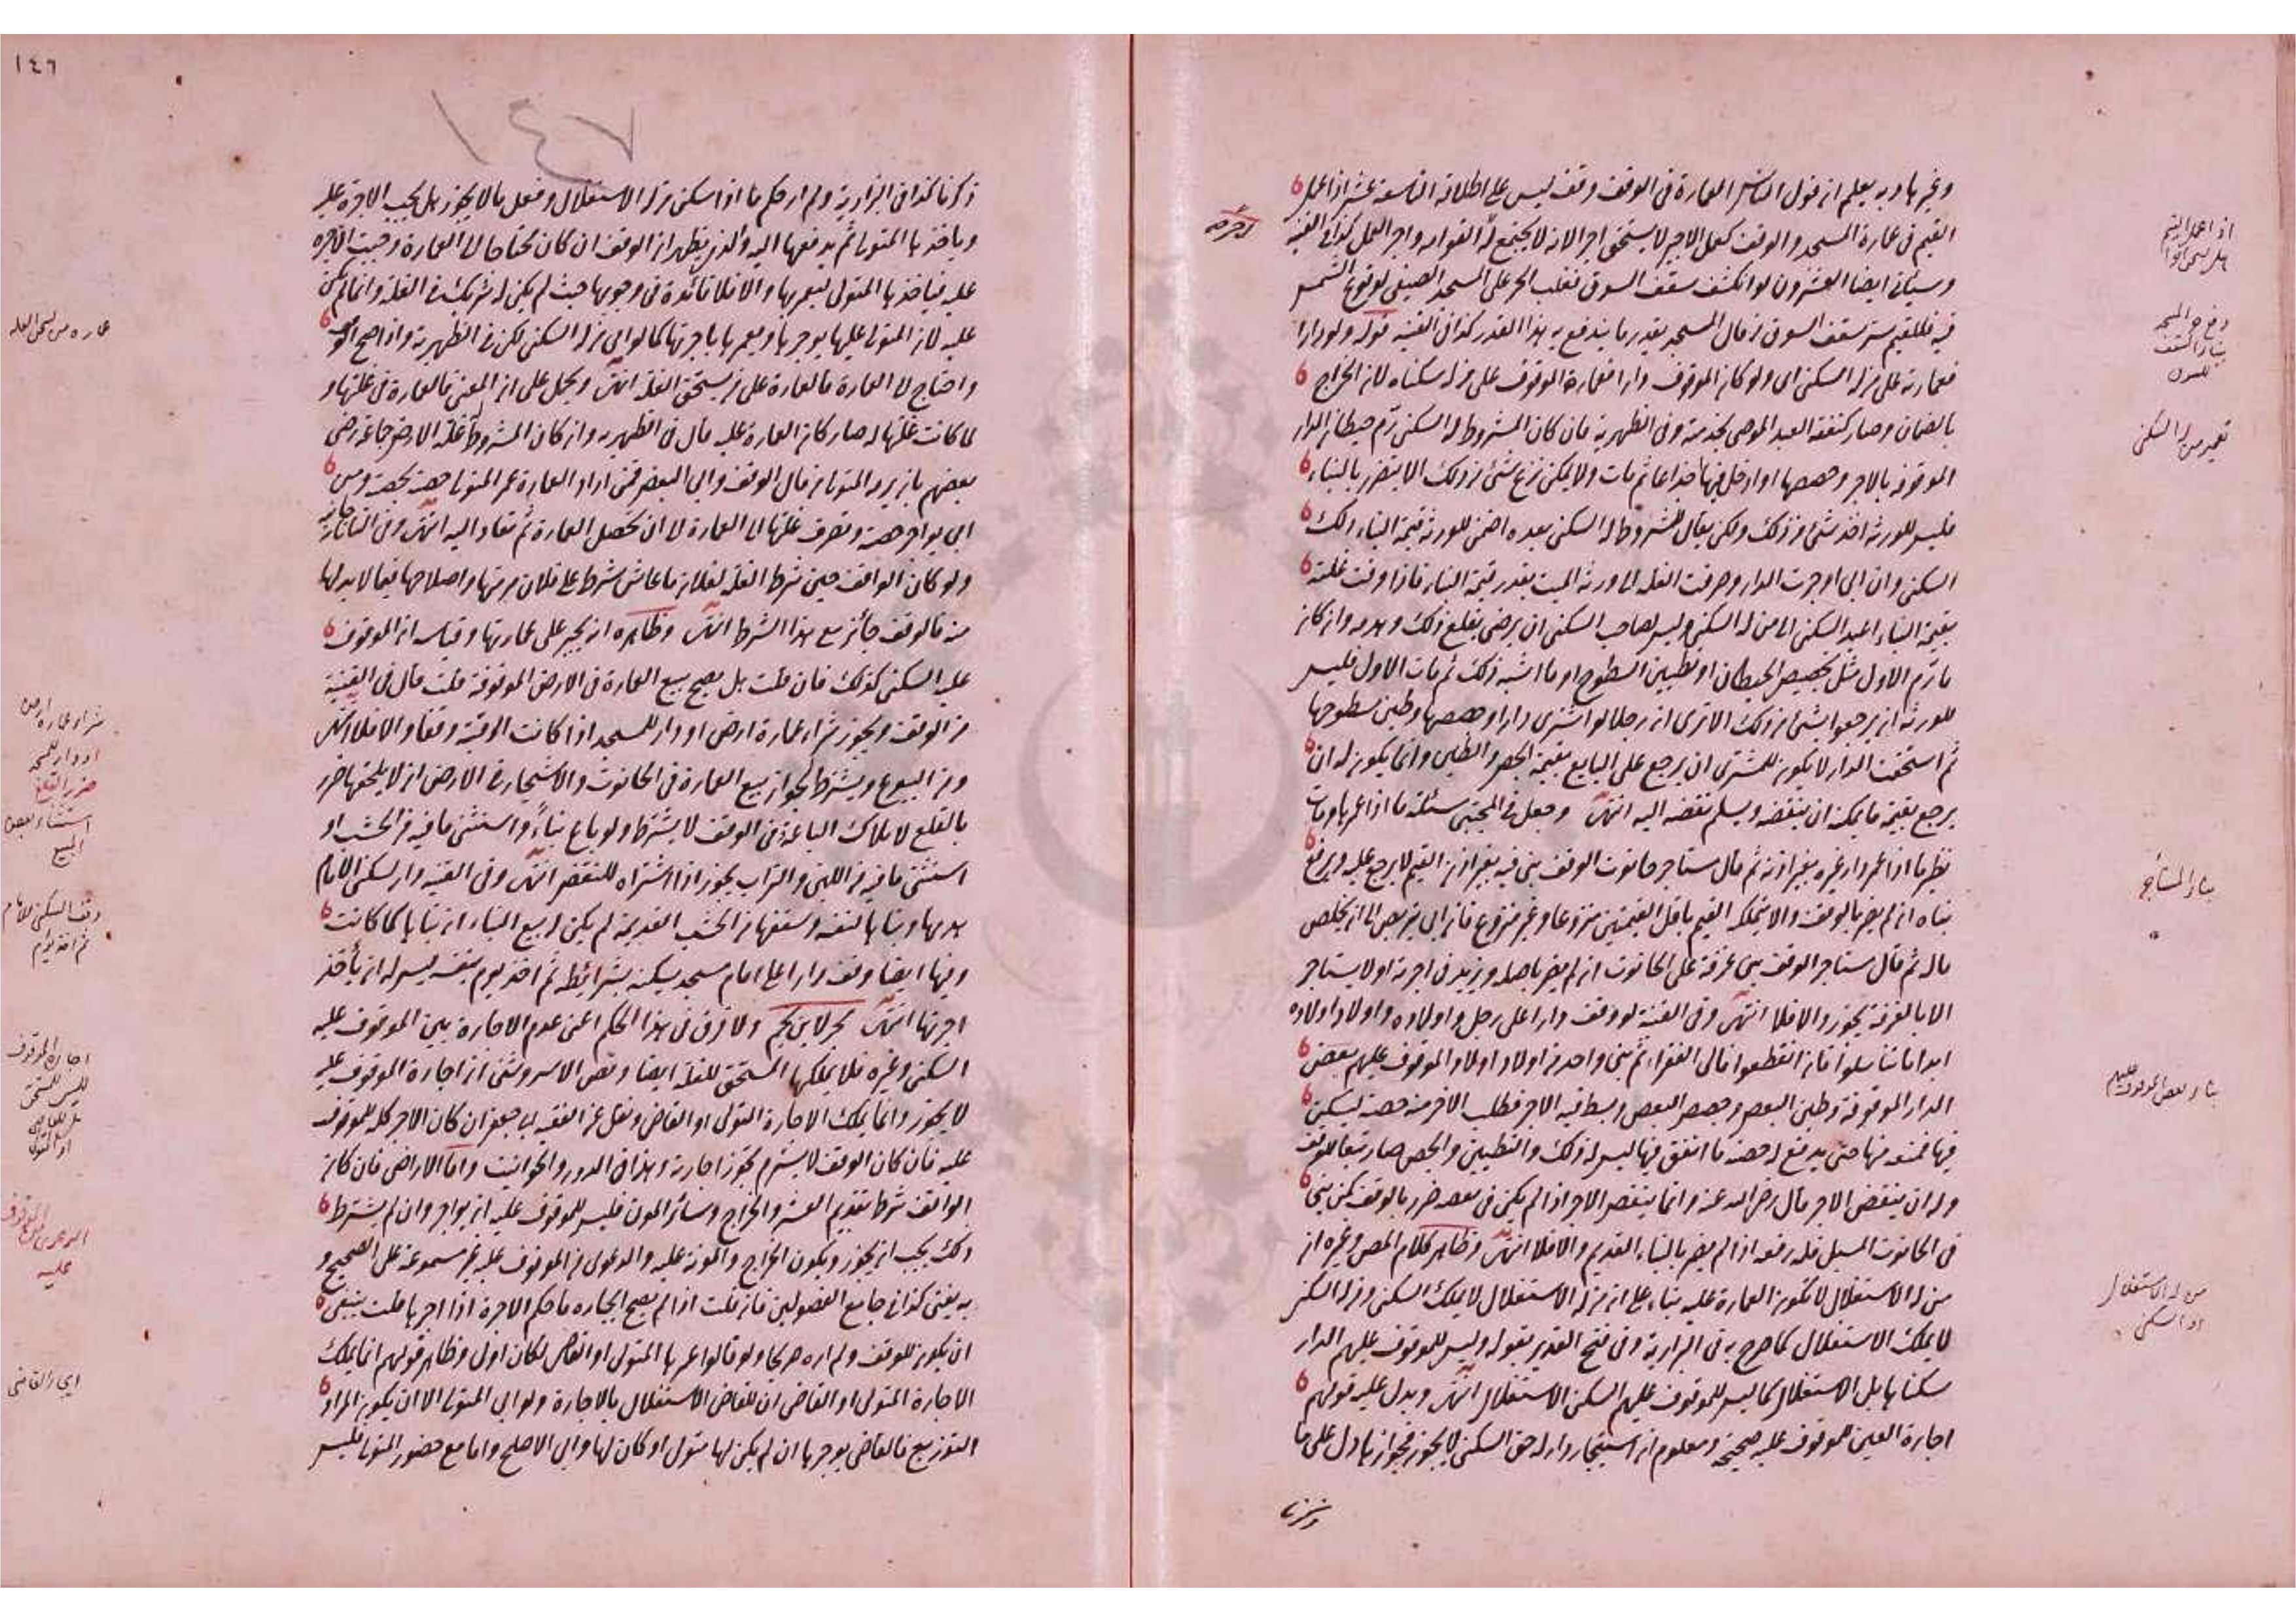 وغيرها وبه يعلم ان قول الناس العمارة في الوقف وقف ليس على اطلاقه التاسعة عشر اذا عمل
القيم في عمارة المسجد والوقف كعمل الاجير لا يستحق اجرا لانه لا يجتمع له القوامة واجر العمل كذا في القنية
وسيأتي ايضا العشرون لو انكشف سقف السوق فغلب الحر على المسجد الصيفي لوقوع الشمس
فيه فللقيم ستر سقف السوق من مال المسجد بقدر ما يندفع به هذا القدر كذا في القنية قوله ولو دارا
فعمارته على من له السكنى اى ولو كان الموقوف دارا فعمارة الموقوف على من له سكناه لان الخراج
بالضمان وصار كنفقة العبد الموصى بخدمته وفي الظهيرية فان كان المشروط له السكنى رم حيطان الدار
الموقوفة بالآجر وجصصها او ادخل فيها جذاعا ثم مات ولا يمكن نزع شئ من ذلك الا بتضرر بالبناء
فليس للورثة اخذ شئ من ذلك ولكن يقال للمشروط له السكنى بعده اضمن للورثة قيمة البناء ولك
السكنى وان ابى اوجرت الدار وصرفت الغلة الى ورثة الميت بقدر قيمة البناء فاذا وفت غلته
بقيمة البناء اعيد السكنى الى من له السكنى وليس لصاحب السكنى ان يرضى بقلع ذلك وهدمه وان كان
ما رم الاول مثل تجصيص الحيطان او تطيين السطوح او ما اشبه ذلك ثم مات الاول فليس
للورثة ان يرجعوا بشئ من ذلك الا ترى ان رجلا لو اشترى دارا وجصصها وطين سطوحها
ثم استحقت الدار لا يكون للمشترى ان يرجع على البايع بقيمة الجص والطين وانما يكون له ان
يرجع بقيمة ما يمكنه ان ينقضه ويسلم نقضه اليه انتهى وجعل في المجتبى مسئلة ما اذا عمرها ومات
نظير ما اذا عمر دار غيره بغير اذنه ثم قال مستاجر حانوت الوقف بنى فيه بغير اذن القيم لا يرجع عليه ويرفع
بناه ان لم يضر بالوقف والا يتملكه القيم باقل القيمتين منزوعا وغير منزوع فان ابى يتربص الى ان يخلص
ماله ثم قال مستاجر الوقف بنى غرفة على الحانوت ان لم يضر باصله ويزيد في اجرته او لا يستاجر
الا بالغرفة يجوز والا فلا انتهى وفي القنية لو وقف دارا على رجل واولاده واولاد اولاده
ابدا ما تناسلوا فان انقطعوا فالى الفقراء ثم بنى واحد من اولاد اولاد الموقوف عليهم بعض
الدار الموقوفة وطين البعض وجصص البعض وبسط فيه الآجر فطلب الآخر منه حصته ليسكن
فيها فمنعه منها حتى يدفع له حصة ما انفق فيها ليس له ذلك والتطيين والجص صار تبعا للوقف
وله ان ينقض الآجر قال رضى الله عنه وانما ينقض الآجر اذا لم يكن في نقضه ضرر بالوقف كمن بنى
في الحانوت المسبل فله رفعه اذا لم يضر بالبناء القديم والا فلا انتهى وظاهر كلام المص وغيره ان
من له الاستغلال لا تكون العمارة عليه بناء على ان من له الاستغلال لا يملك السكنى ومن له السكنى
لا يملك الاستغلال كما صرح به في البزازية وفي فتح القدير بقوله وليس للموقوف عليهم الدار
سكناها بل الاستغلال كما ليس للموقوف عليهم السكنى الاستغلال انتهى ويدل عليه قولهم
اجارة العين للموقوف عليه صحيحة ومعلوم ان استيجار دار له حق السكنى لا يجوز فجواز هذا دل على ما
ذكرنا
اذا عمل القيم
هل يستحق اجرا
دفع حر المسجد
بناء السقف
للسوق
تعمير من له السكنى
بناء المستأجر
بناء بعض الموقوف عليهم
من له الاستغلال
او السكنى
١٤٦
١٤٧
ذكرنا كذا في البزازية ولم ار حكم ما اذا سكن من له الاستغلال وفعل ما لا يجوز هل يجب الاجرة عليه
وياخذها المتولى ثم يدفعها اليه والذي يظهر ان الوقف ان كان محتاجا الى العمارة وجبت الاجرة
عليه فياخذها المتولى ليعمرها والا فلا فائدة في وجوبها حيث لم يكن له شريك في الغلة وانما لم تكن
عليه لان المتولى عليها يوجرها ويعمرها باجرتها كما لو ابى من له السكنى لكن في الظهيرية واذا صح الوقف
واحتاج الى العمارة فالعمارة على من يستحق الغلة انتهى ويحمل على ان المعنى فالعمارة في غلتها و
لما كانت غلتها له صار كان العمارة عليه قال في الظهيرية وان كان المشروط له غلة الارض جماعة رضى
بعضهم بان يرمه المتولى من مال الوقف وابى البعض فمن اراد العمارة عمر المتولى حصته بحصته ومن
ابى يواجر حصته وتصرف غلتها الى العمارة الى ان تحصل العمارة ثم تعاد اليه انتهى وفي التاتارخانية
ولو كان الواقف حين شرط الغلة لفلان ما عاش شرط على فلان مرمتها واصلاحها فيما لا بد لها
منه فالوقف جائز مع هذا الشرط انتهى وظاهره انه يجبر على عمارتها وقياسه ان الموقوف
عليه السكنى كذلك فان قلت هل يصح بيع العمارة في الارض الموقوفة قلت قال في القنية
من الوقف ويجوز شراء عمارة ارض او دار للمسجد اذا كانت الرقبة وقفا والا فلا انتهى
ومن البيوع ويشترط لجواز بيع العمارة في الحانوت والاشجار في الارض ان لا يلحقها ضرر
بالقلع لا ملاك الباعة وفي الوقف لا يشترط ولو باع بناءً واستثنى ما فيه من الخشب او
استثنى ما فيه من اللبن والتراب يجوز اذا اشتراه للنقض انتهى وفي القنية دار لسكنى الامام
هدمها وبناها لنفسه وسقفها من الخشب القديمة لم يكن له بيع البناء ان بناها كما كانت
وفيها ايضا وقف دارا على امام مسجد يسكنه بشرائطه ثم اخذ يوم بنفسه ليس له ان يأخذ
اجرتها انتهى بحر لابن نجم ولا فرق في هذا الحكم اعنى عدم الاجارة بين الموقوف عليه
السكنى وغيره فلا يملكها المستحق للغلة ايضا ونص الاسروشنى ان اجارة الموقوف عليه
لا يجوز وانما يملك الاجارة المتولى او القاضى ونقل عن الفقيه ابى جعفر ان كان الاجر كله للموقوف
عليه فان كان الوقف لا يسترم تجوز اجارته وهذا في الدور والحوانيت واما الاراضى فان كان
الواقف شرط تقديم العشر والخراج وسائر المون فليس للموقوف عليه ان يواجر وان لم يشترط
ذلك يجب ان يجوز ويكون الخراج والمونة عليه والدعوى من الموقوف عليه غير مسموعة على الصحيح و
به يفتى كذا في جامع الفصولين فان قلت اذا لم يصح ايجاره ما حكم الاجرة اذا اجرها قلت ينبغى
ان يكون للوقف ولم اره صريحا ولو قالوا عمرها المتولى او القاضى لكان اولى وظاهر قولهم انما يملك
الاجارة المتولى او القاضى ان للقاضى الاستغلال بالاجارة ولو ابى المتولى الا ان يكون المراد
التوزيع فالقاضى يوجرها ان لم يكن لها متول او كان لها وابى الاصلح واما مع حضور المتولى فليس
عمارة من يستحق الغلة
شراء عمارة ارض
او دار للمسجد
ضرر القلع
استثناء بعض
المبيع
وقف السكنى للامام
اجارة الموقوف
ليس للمستحق
بل للقاضى
او المتولى
الدعوى من الموقوف
عليه
ايجار القاضى